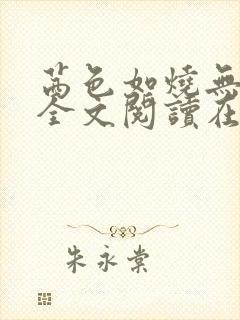 茜色如燒無
全文閱讀在
朱永棠